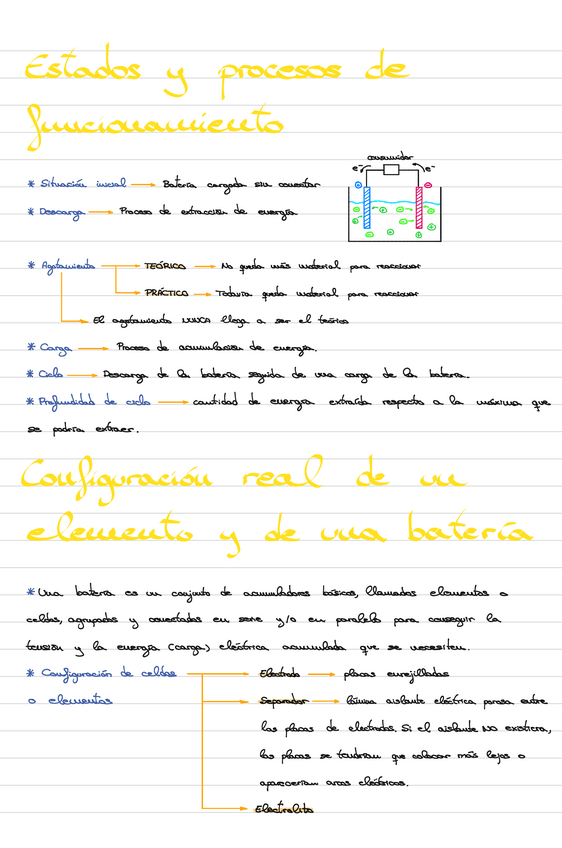 Estados y procesos de
funcionamiento
consumidor
e⁻ e⁻
* Situación inicial → Batería cargada sin conectar
* Descarga → Proceso de extracción de energía
* Agotamiento → TEÓRICO → No queda más material para reaccionar
→ PRÁCTICO → Todavía queda material para reaccionar
→ El agotamiento NUNCA llega a ser el teórico
* Carga → Proceso de acumulación de energía.
* Ciclo → Descarga de la batería seguida de una carga de la batería.
* Profundidad de ciclo → cantidad de energía extraída respecto a la máxima que
se podría extraer.
Configuración real de un
elemento y de una batería
* Una batería es un conjunto de acumuladores básicos, llamados elementos o
celdas, agrupados y conectados en serie y/o en paralelo para conseguir la
tensión y la energía (carga) eléctrica acumulada que se necesiten.
* Configuración de celdas → Electrodo → placas enrejilladas
o elementos → Separador → lámina aislante eléctrica porosa entre
las placas de electrodos. Si el aislante NO existiera,
las placas se tendrían que colocar más lejos o
aparecerían arcos eléctricos.
→ Electrolito